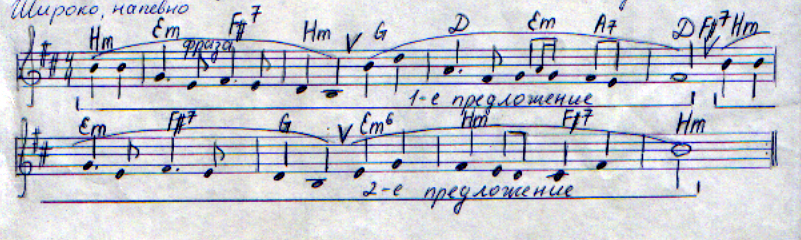 Широко, напевно
Hm Em F#7 Hm V G D Em A7 D F#7 Hm
фраза
1-е предложение
Em F#7 G V Em6 Hm F#7 Hm
2-е предложение